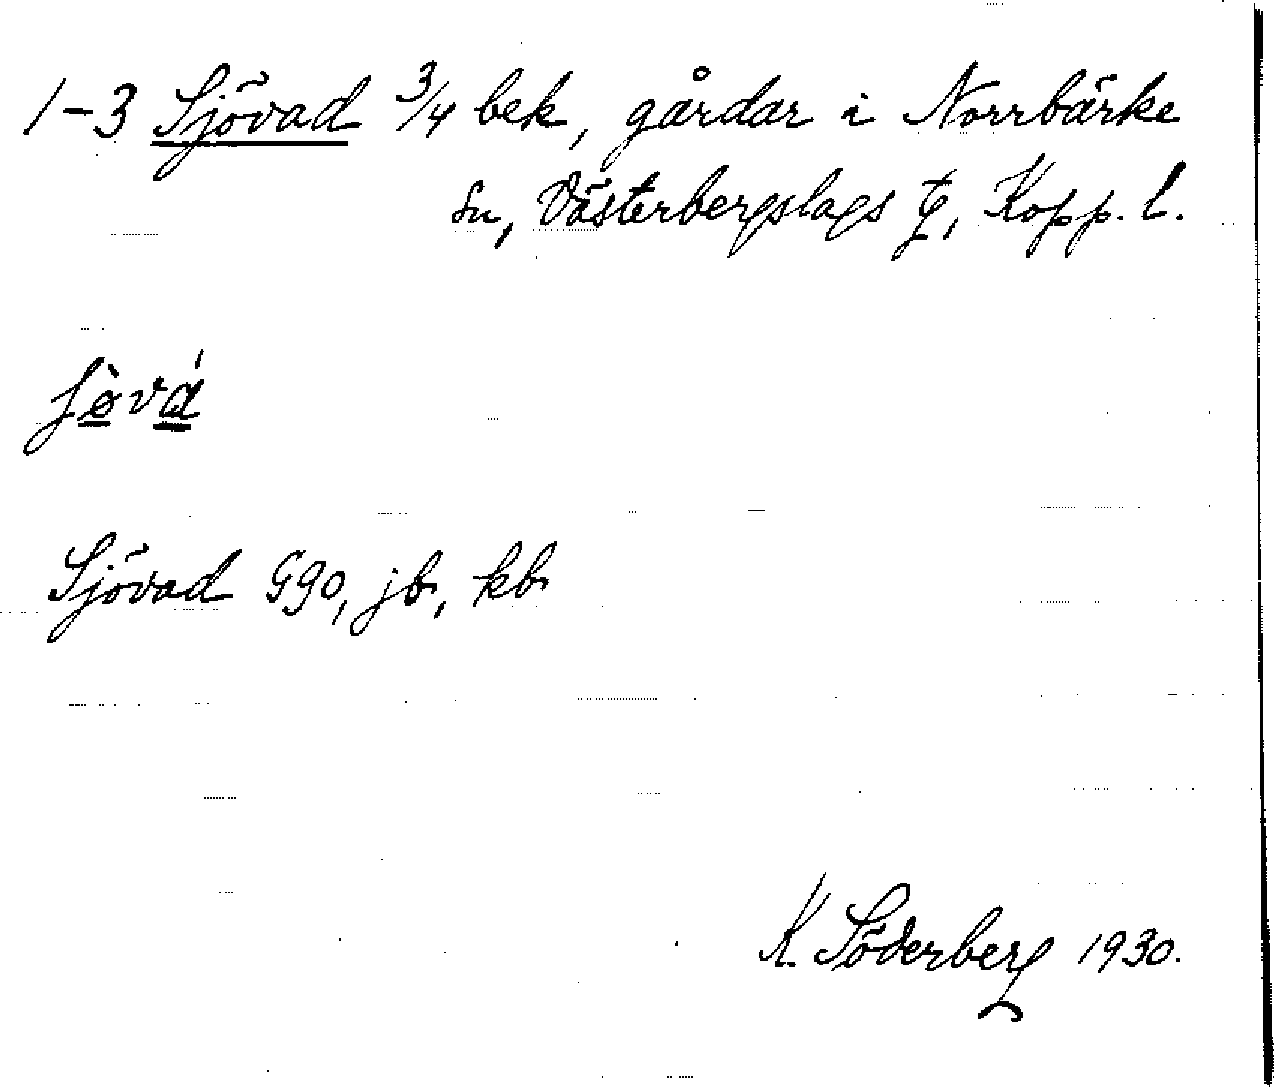 1-3 Sjövad 3/4 bek, gårdar i Norrbärke
sn, Västerbergslags tg, Kopp. l.
Sjövad G90, jb, kb
K. Söderberg 1930.